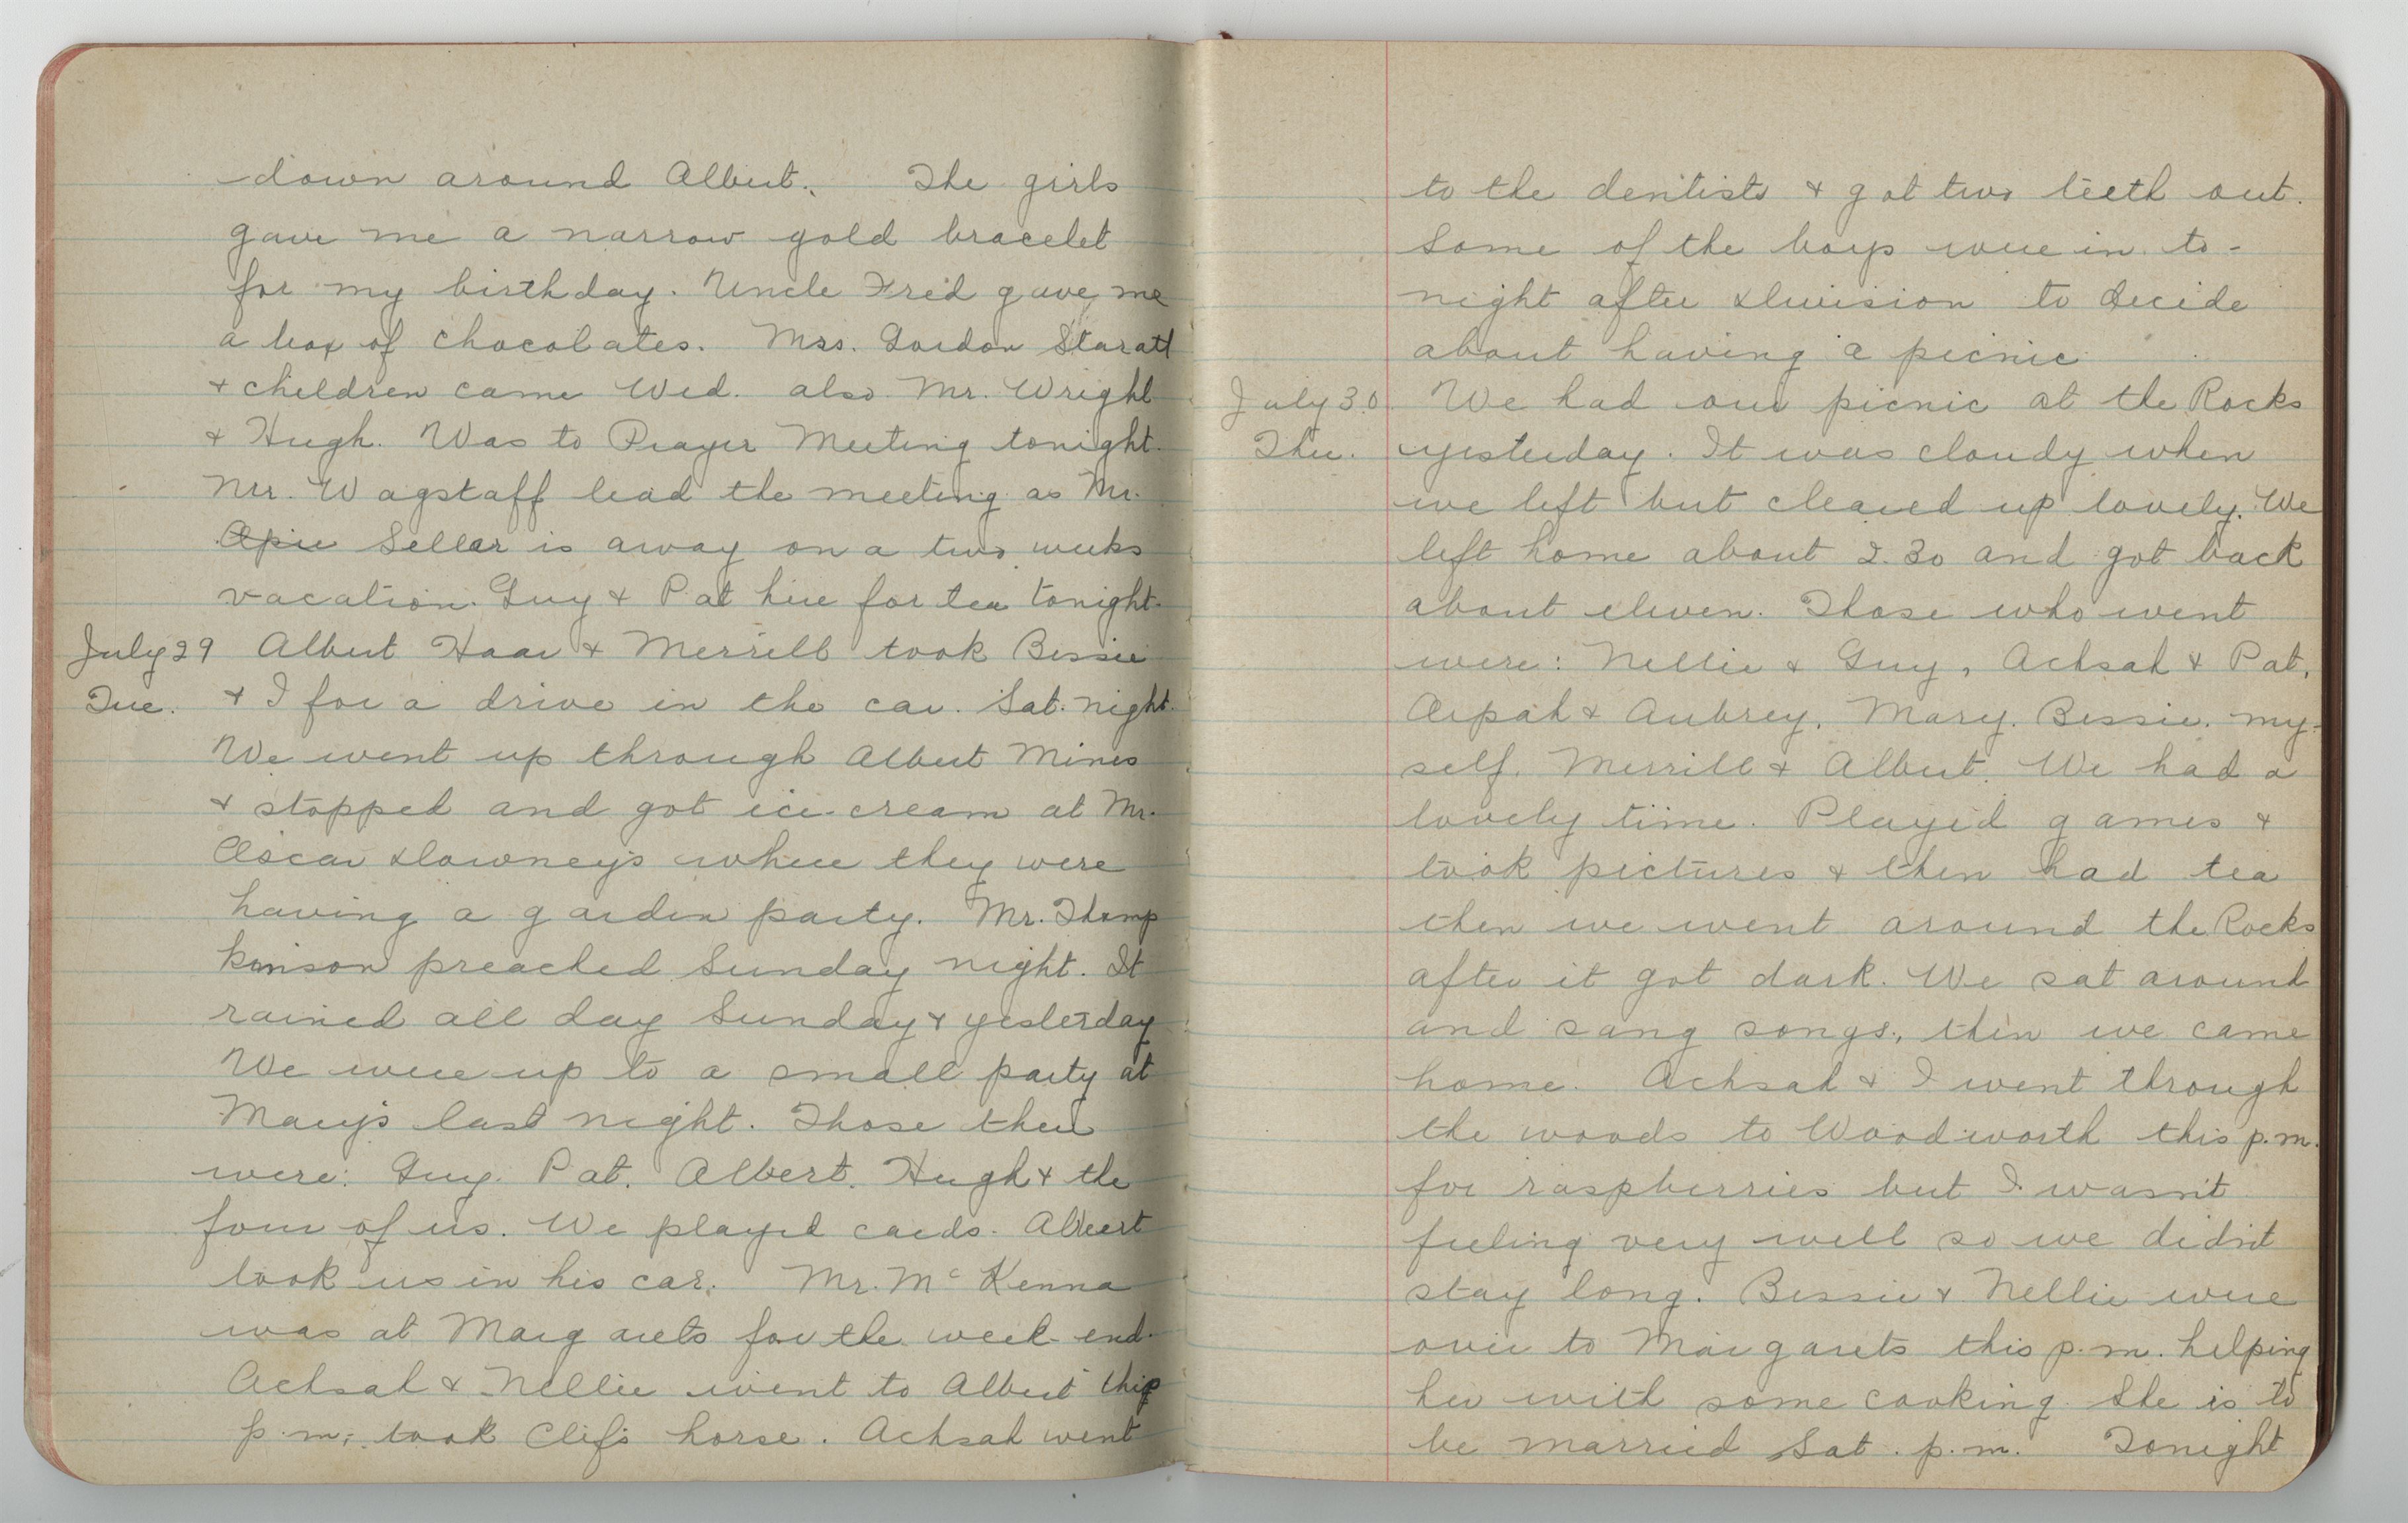 down around Albert. The girls
gave me a narrow gold bracelet
for my birthday. Uncle Fred gave me
a box of chocolates. Mrs. Gordon Staratt
& children came Wed. also Mr. Wright
& Hugh. Was to Prayer Meeting tonight.
Mr. Wagstaff lead the meeting as Mr.
Opie Sellar is away on a two weeks
vacation. Guy & Pat here for tea tonight.
July 29 Albert Haar & Merrill took Bessie
Tue. & I for a drive in the car. Sat. night.
We went up through Albert Mines
& stopped and got ice-cream at Mr.
Oscar Downey's where they were
having a garden party. Mr. Thomp
kinson preached Sunday night. It
rained all day Sunday & yesterday
We were up to a small party at
Mary's last night. Those there
were: Guy. Pat. Albert. Hugh & the
four of us. We played cards. Albert
took us in his car. Mr. McKenna
was at Margarets for the week-end.
Achsah & Nellie went to Albert this
p.m; took Clif's horse. Achsah went
to the dentists & got two teeth out.
Some of the boys were in to-
night after Division to decide
about having a picnic
July 30 We had our picnic at the Rocks
Thu. yesterday. It was cloudy when
we left but cleared up lovely. We
left home about 2.30 and got back
about eleven. Those who went
were: Nellie & Guy, Achsah & Pat,
Orpah & Aubrey. Mary. Bessie. my-
self. Merrill & Albert. We had a
lovely time. Played games &
took pictures & then had tea
then we went around the Rocks
after it got dark. We sat around
and sang songs, then we came
home. Achsah & I went through
the woods to Woodworth this p.m.
for raspberries but I wasn't
feeling very well so we didn't
stay long. Bessie & Nellie were
over to Margarets this p.m. helping
her with some cooking. She is to
be married Sat. p.m. Tonight